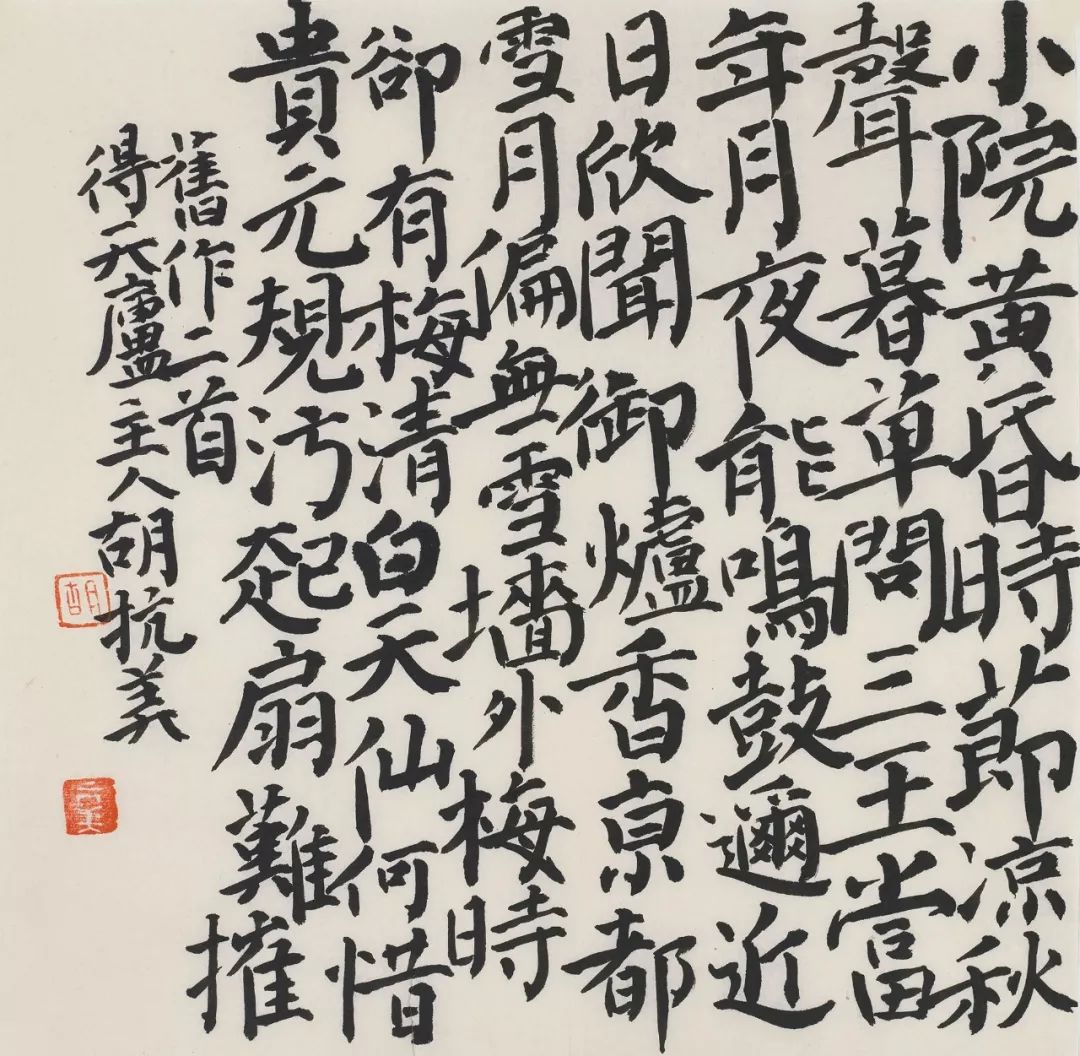 小院黄昏時節凉秋
聲暮草問三王當
年月夜能鳴鼓邇近
日欣聞御爐香京都
雪月偏無雪墻外梅時
卻有梅清白天仙何惜
貴元規污起扇難摧
舊作二首
得天廬主人胡抗美
胡